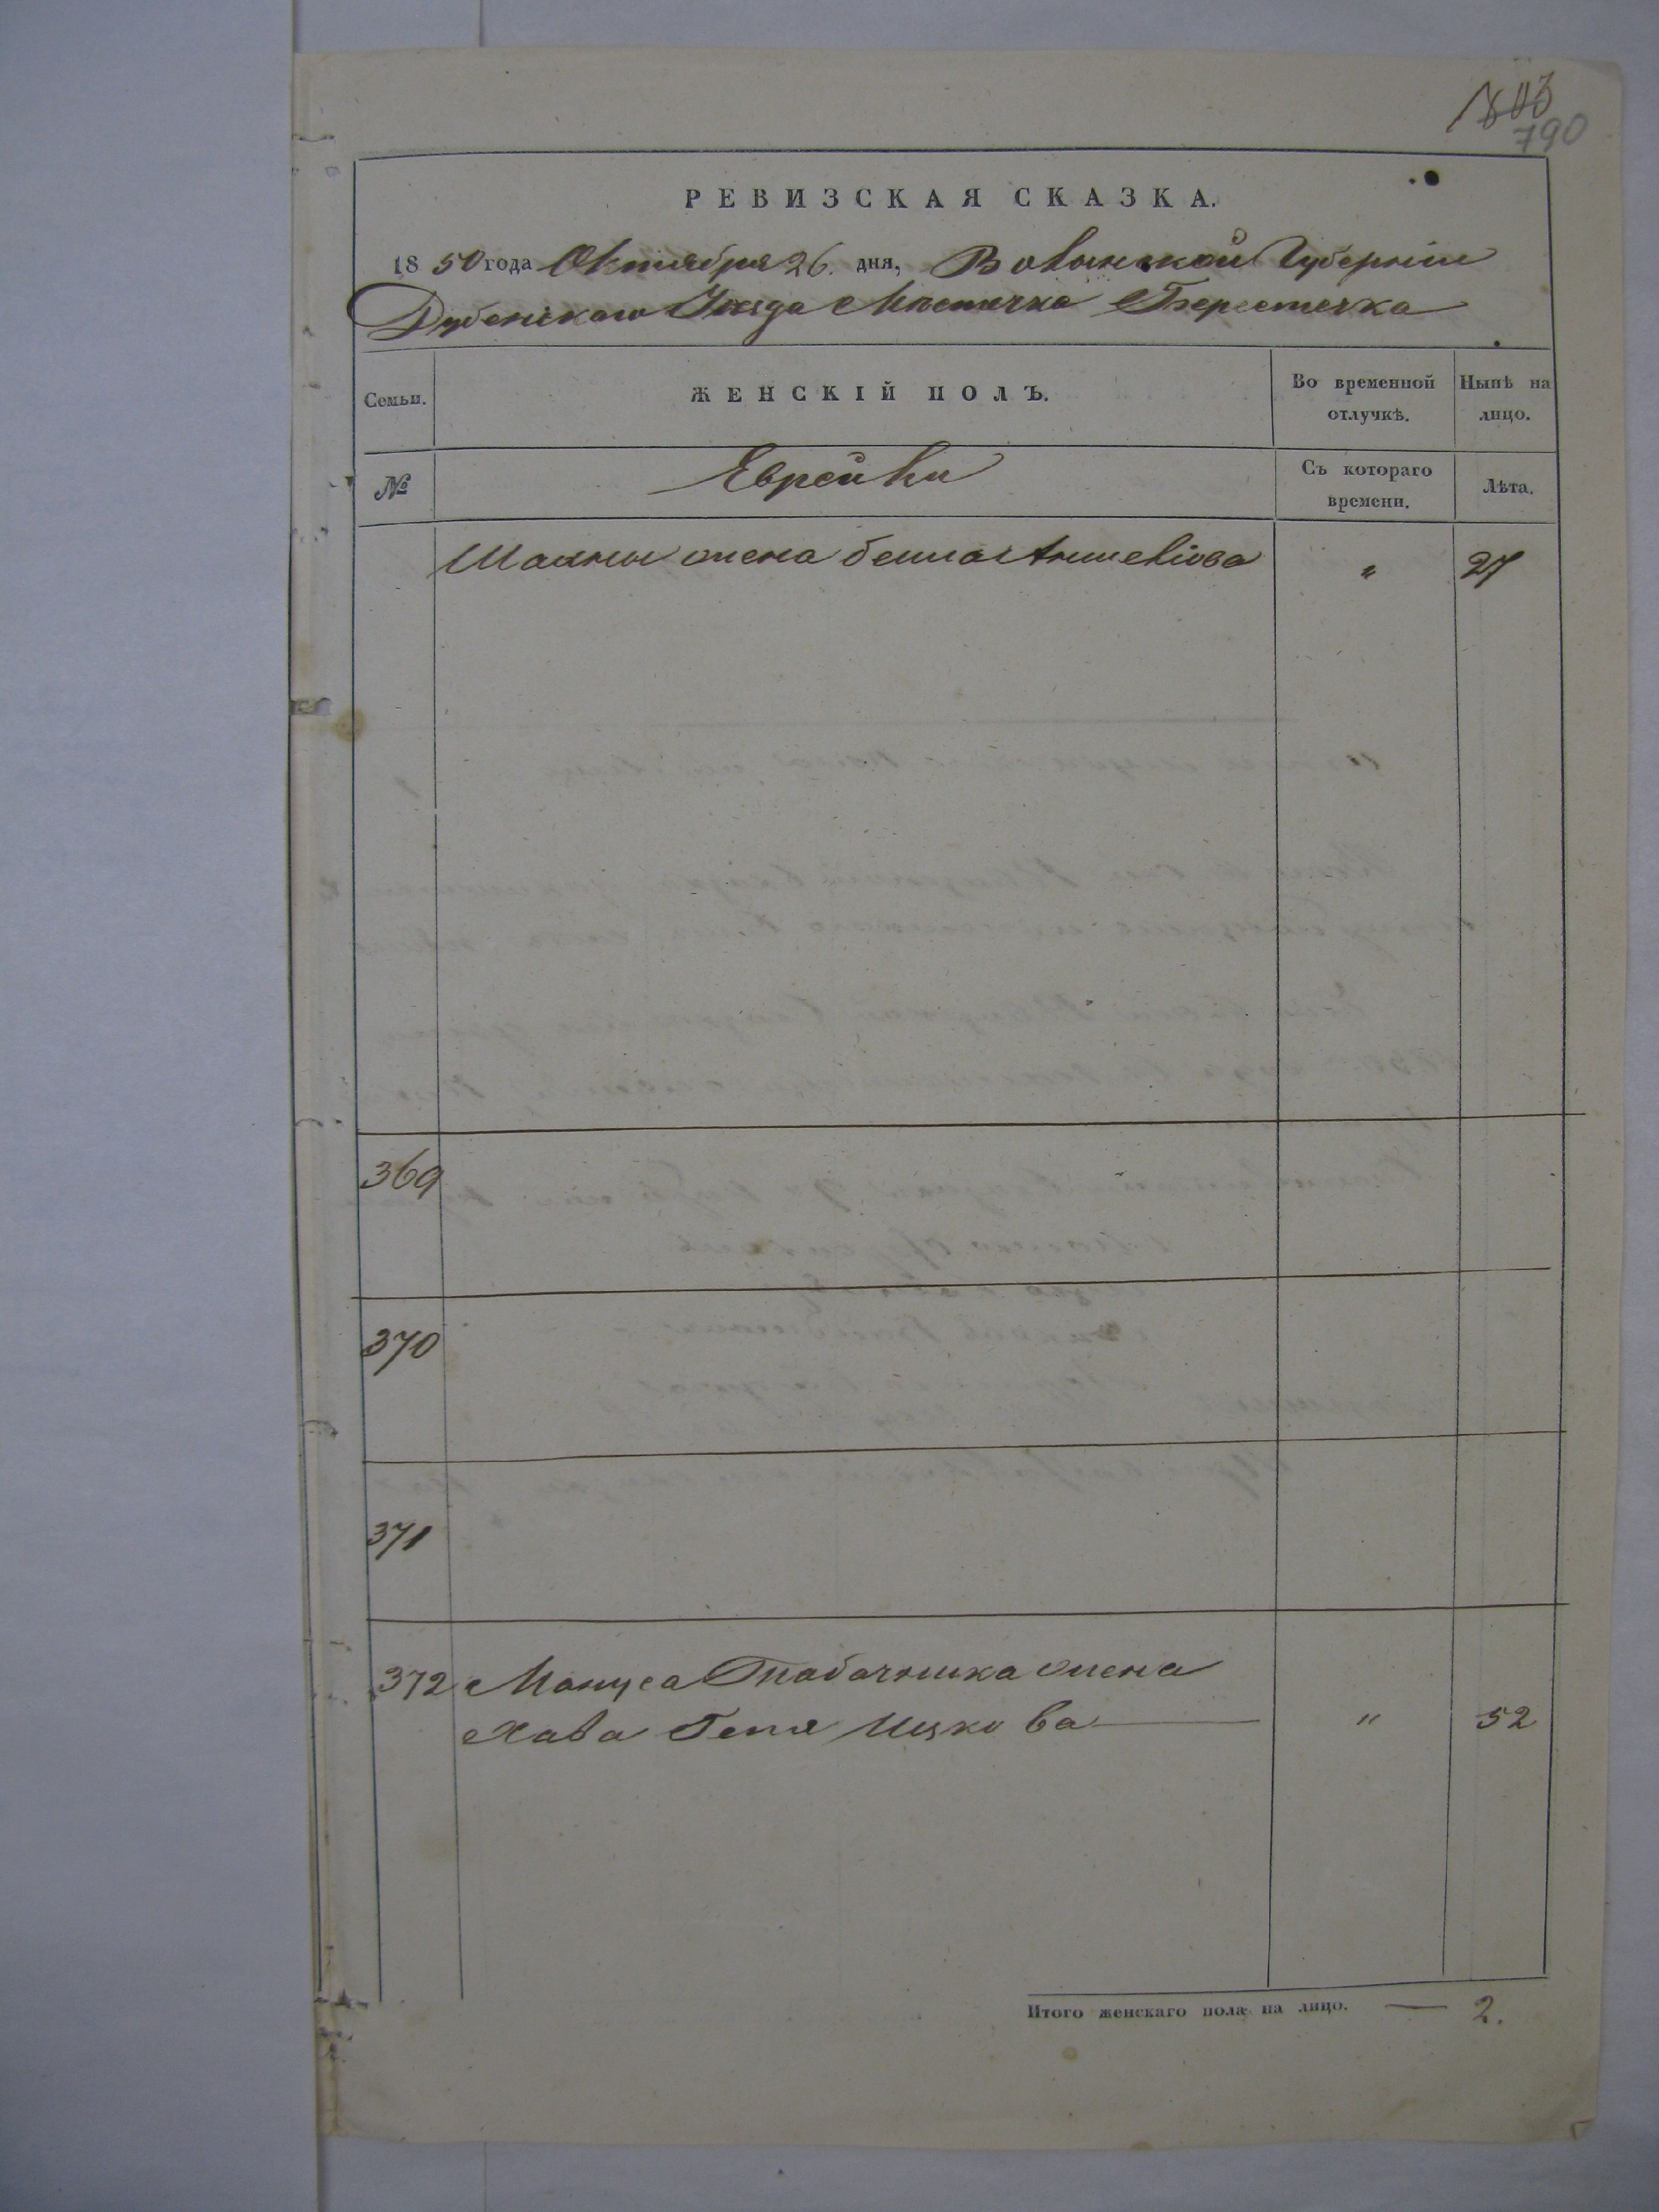 790
РЕВИЗСКАЯ СКАЗКА.
1850 года Октября 26. дня, Волынской Губерніи
Дубенскаго Уезда Местечка Берестечка
Семьи.
ЖЕНСКІЙ ПОЛЪ.
Во временной отлучкѣ.
Нынѣ на лицо.
№
Еврейки
Съ котораго времени.
Лѣта.
жена Бейла Аншелiова " 27
369
370
371
372 Мануса Табачника жена
Хава Геня Ицкова " 52
Итого женскаго пола на лицо. — 2.